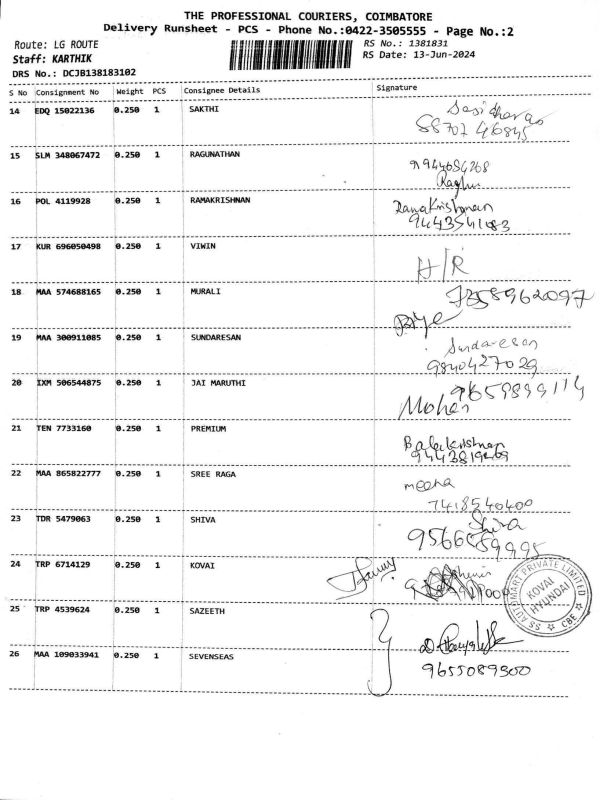 THE PROFESSIONAL COURIERS, COIMBATORE
Delivery Runsheet - PCS - Phone No.:0422-3505555 - Page No.:2
Route: LG ROUTE
RS No.: 1381831
Staff: KARTHIK
RS Date: 13-Jun-2024
DRS No.: DCJB138183102
S No Consignment No Weight PCS Consignee Details Signature
14 EDQ 15022136 0.250 1 SAKTHI
15 SLM 348067472 0.250 1 RAGUNATHAN
Raghu
16 POL 4119928 0.250 1 RAMAKRISHNAN Ramakrishnan
17 KUR 696050498 0.250 1 VIWIN
H/R
18 MAA 574688165 0.250 1 MURALI
19 MAA 300911085 0.250 1 SUNDARESAN Sundaresan
9840427029
20 IXM 506544875 0.250 1 JAI MARUTHI
Mohan
21 TEN 7733160 0.250 1 PREMIUM Balakrishnan
22 MAA 865822777 0.250 1 SREE RAGA meena
7418540400
23 TDR 5479063 0.250 1 SHIVA Shiva
24 TRP 6714129 0.250 1 KOVAI
SS AUTOMART PRIVATE LIMITED
KOVAI HYUNDAI
CBE
25 TRP 4539624 0.250 1 SAZEETH
26 MAA 109033941 0.250 1 SEVENSEAS
9655089300